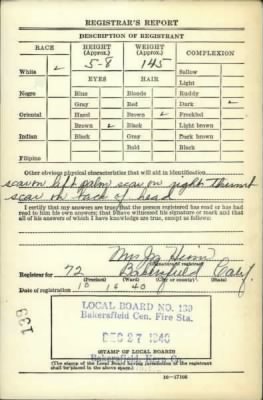 REGISTRAR'S REPORT
DESCRIPTION OF REGISTRANT
RACE HEIGHT (Approx.) WEIGHT (Approx.) COMPLEXION
5-8 145
White ✓ Sallow
EYES HAIR Light
Negro Blue Blonde Ruddy
Gray Red Dark ✓
Oriental Hazel Brown ✓ Freckled
Brown ✓ Black Light brown
Indian Black Gray Dark brown
Bald Black
Filipino
Other obvious physical characteristics that will aid in identification
scar on left palm scar on right thumb
scar on back of head
I certify that my answers are true; that the person registered has read or has had
read to him his own answers; that I have witnessed his signature or mark and that
all of his answers of which I have knowledge are true, except as follows:
Mrs
Registrar for 72 Bakersfield Calif.
(Precinct) (Ward) (City or county) (State)
Date of registration 10 16 40
139
LOCAL BOARD NO. 139
Bakersfield Cen. Fire Sta.
DEC 27 1940
STAMP OF LOCAL BOARD
Bakersfield, Kern Co.
(The stamp of the Local Board having jurisdiction of the registrant
shall be placed in the above space.)
16—17105